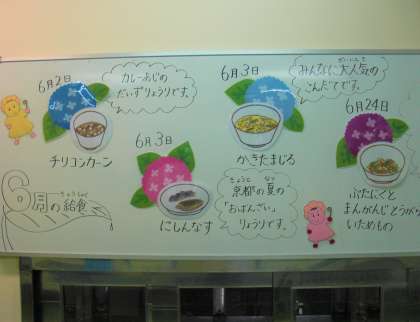 6月2日
カレーあじの
だいずりょうりです。
チリコンカーン
6月3日
みんなに大人気の
だいにんき
こんだてです。
かきたまじる
6月3日
にしんなす
きょうと なつ
京都の夏の
「おばんざい」
りょうりです。
6月24日
ぶたにくと
まんがんじとうがら
いためもの
きゅうしょく
6月の給食